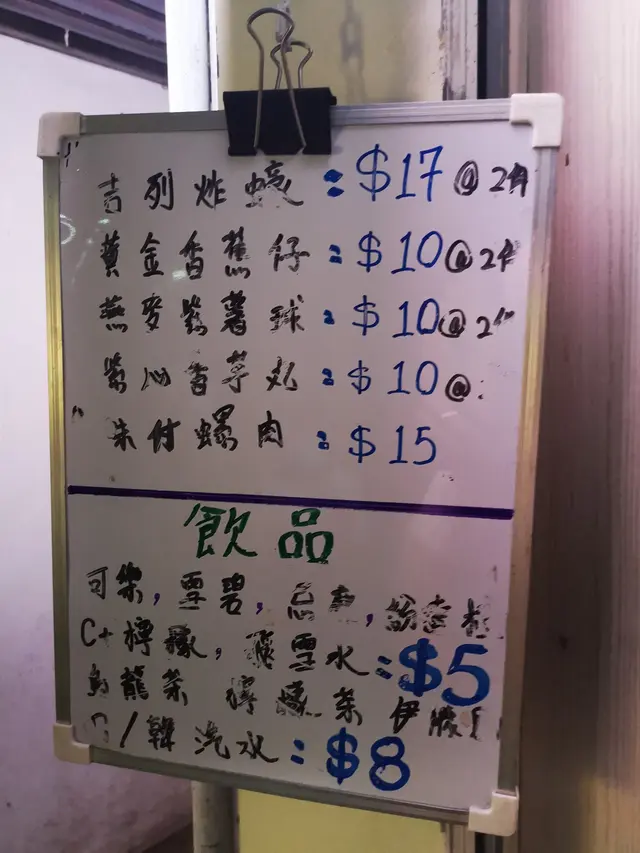 吉列炸蠔：$17@2件
黃金香蕉仔：$10@2件
燕麥紫薯球：$10@2
紫心香芋丸：$10@
朱付螺肉：$15
飲品
可樂，雪碧，忌廉，
C+檸檬，飛雪水：$5
烏龍茶 檸檬茶 伊藤
/韓汽水：$8